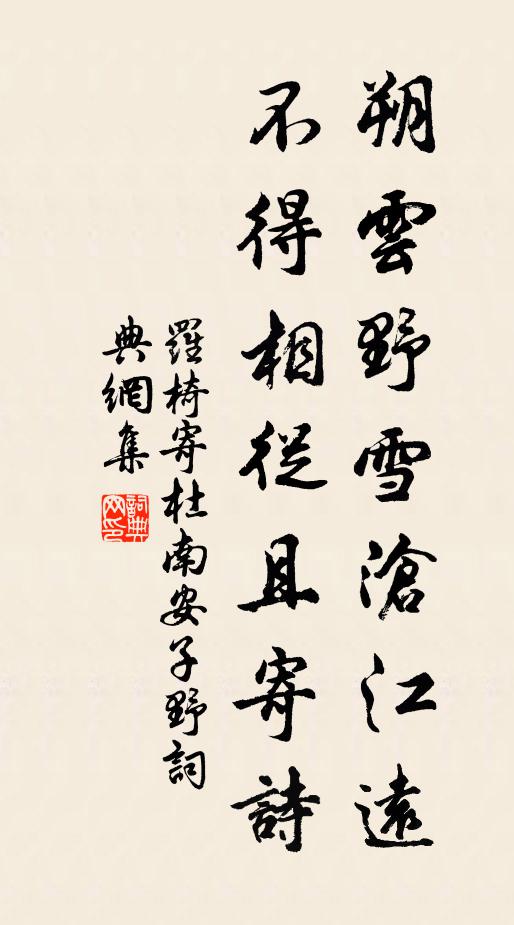 朔雲野雪滄江遠
不得相從且寄詩
羅椅寄杜南安子野詞
典網集
詞典網印